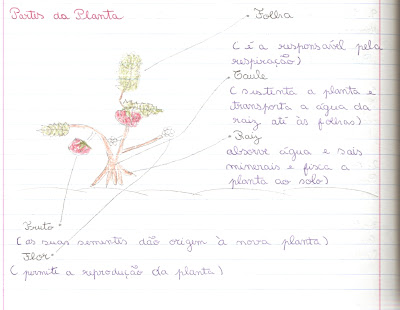 Partes da Planta
• Folha
( é a responsável pela
respiração)
• Caule
( sustenta a planta e
transporta a água da
raiz até às folhas)
• Raiz
absorve água e sais
minerais e fixa a
planta ao solo)
Fruto •
( as suas sementes dão origem à nova planta)
Flor •
( permite a reprodução da planta)